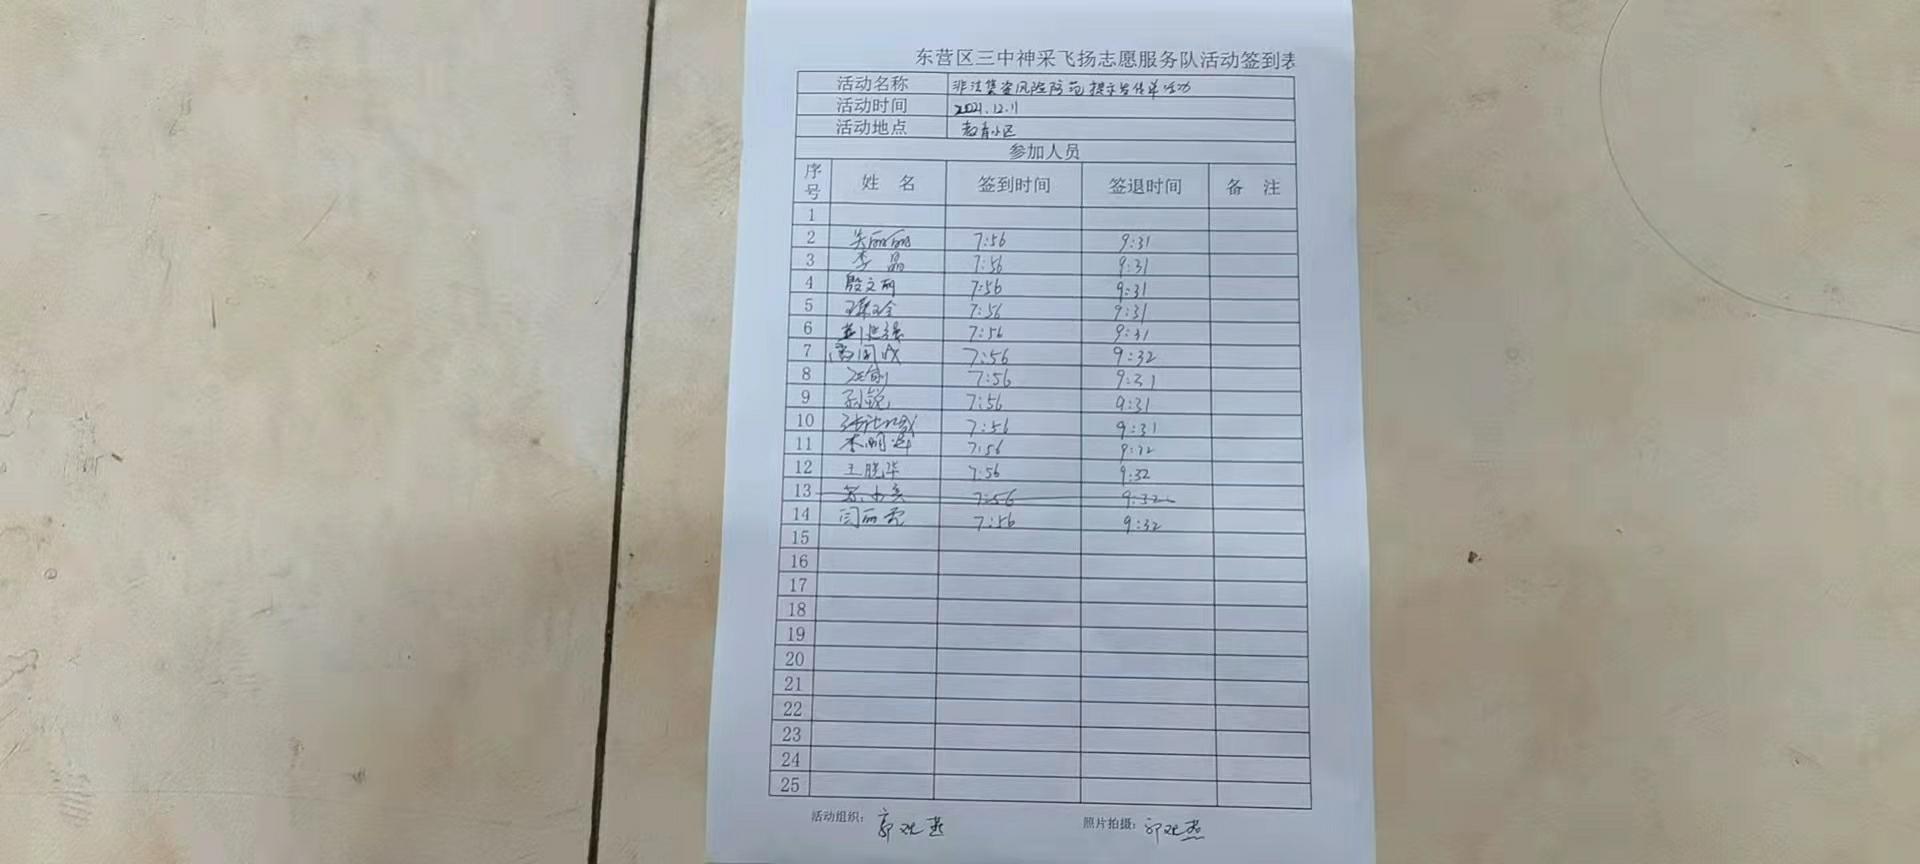 东营区三中神采飞扬志愿服务队活动签到表
活动名称 非法集资风险防范提示宣传单活动
活动时间 2021.12.11
活动地点 教育小区
参加人员
序号 姓 名 签到时间 签退时间 备 注
1
2 吴丽丽 7:56 9:31
3 李晶 7:56 9:31
4 殷文丽 7:56 9:31
5 7:56 9:31
6 7:56 9:31
7 7:56 9:32
8 7:56 9:31
9 孙锐 7:56 9:31
10 7:56 9:31
11 7:56 9:32
12 王晓华 7:56 9:32
13 7:56 9:32
14 闫丽霞 7:56 9:32
15
16
17
18
19
20
21
22
23
24
25
活动组织: 照片拍摄: